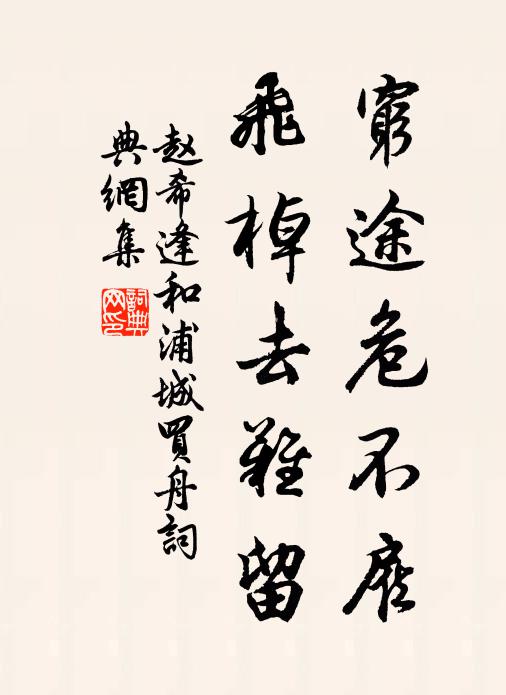 窮途危不
飛棹去難留
赵希逢和浦城買舟詞
典網集
詞典
网印